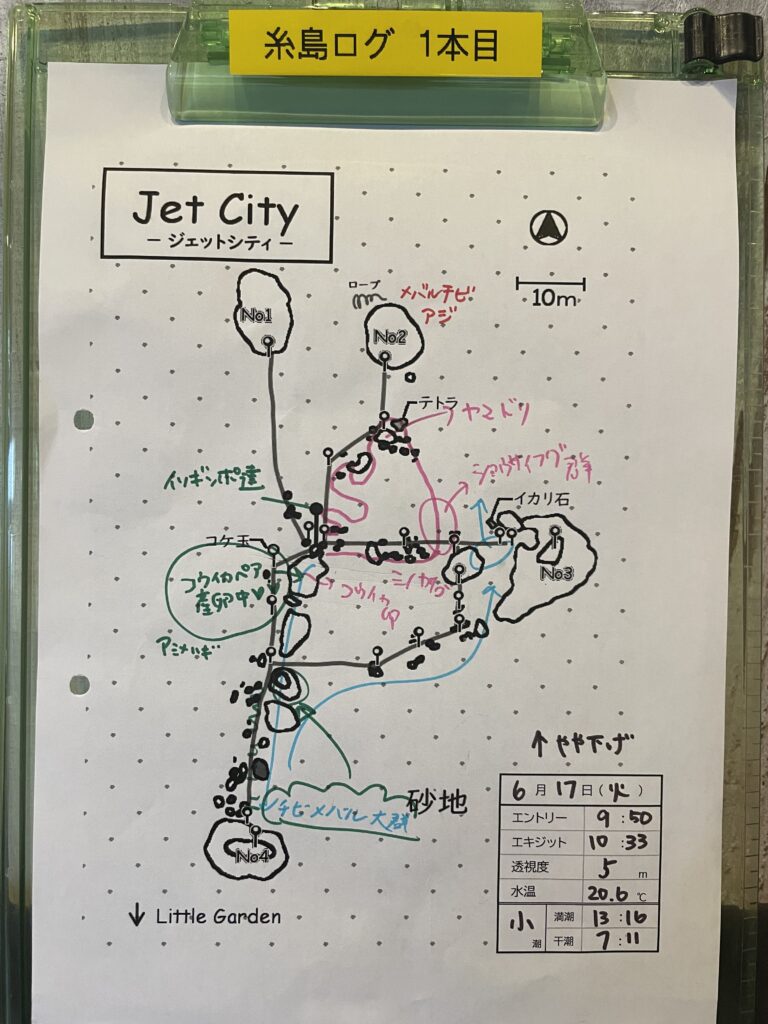 糸島ログ 1本目
Jet City
－ジェットシティ－
10m
No1
ロープ
メバルチビ
アジ
No2
テトラ
ヤマドリ
ショウサイフグ
群
イソギンポ達
イカリ石
コケ玉
No3
コウイカペア
産卵中♥
コウイカ
卵
ミノカサゴ
アミメハギ
↑やや下げ
チビメバル大群
砂地
No4
↓ Little Garden
6月17日(火)
エントリー 9:50
エキジット 10:33
透視度 5 m
水温 20.6 ℃
小潮 満潮 13:16
干潮 7:11